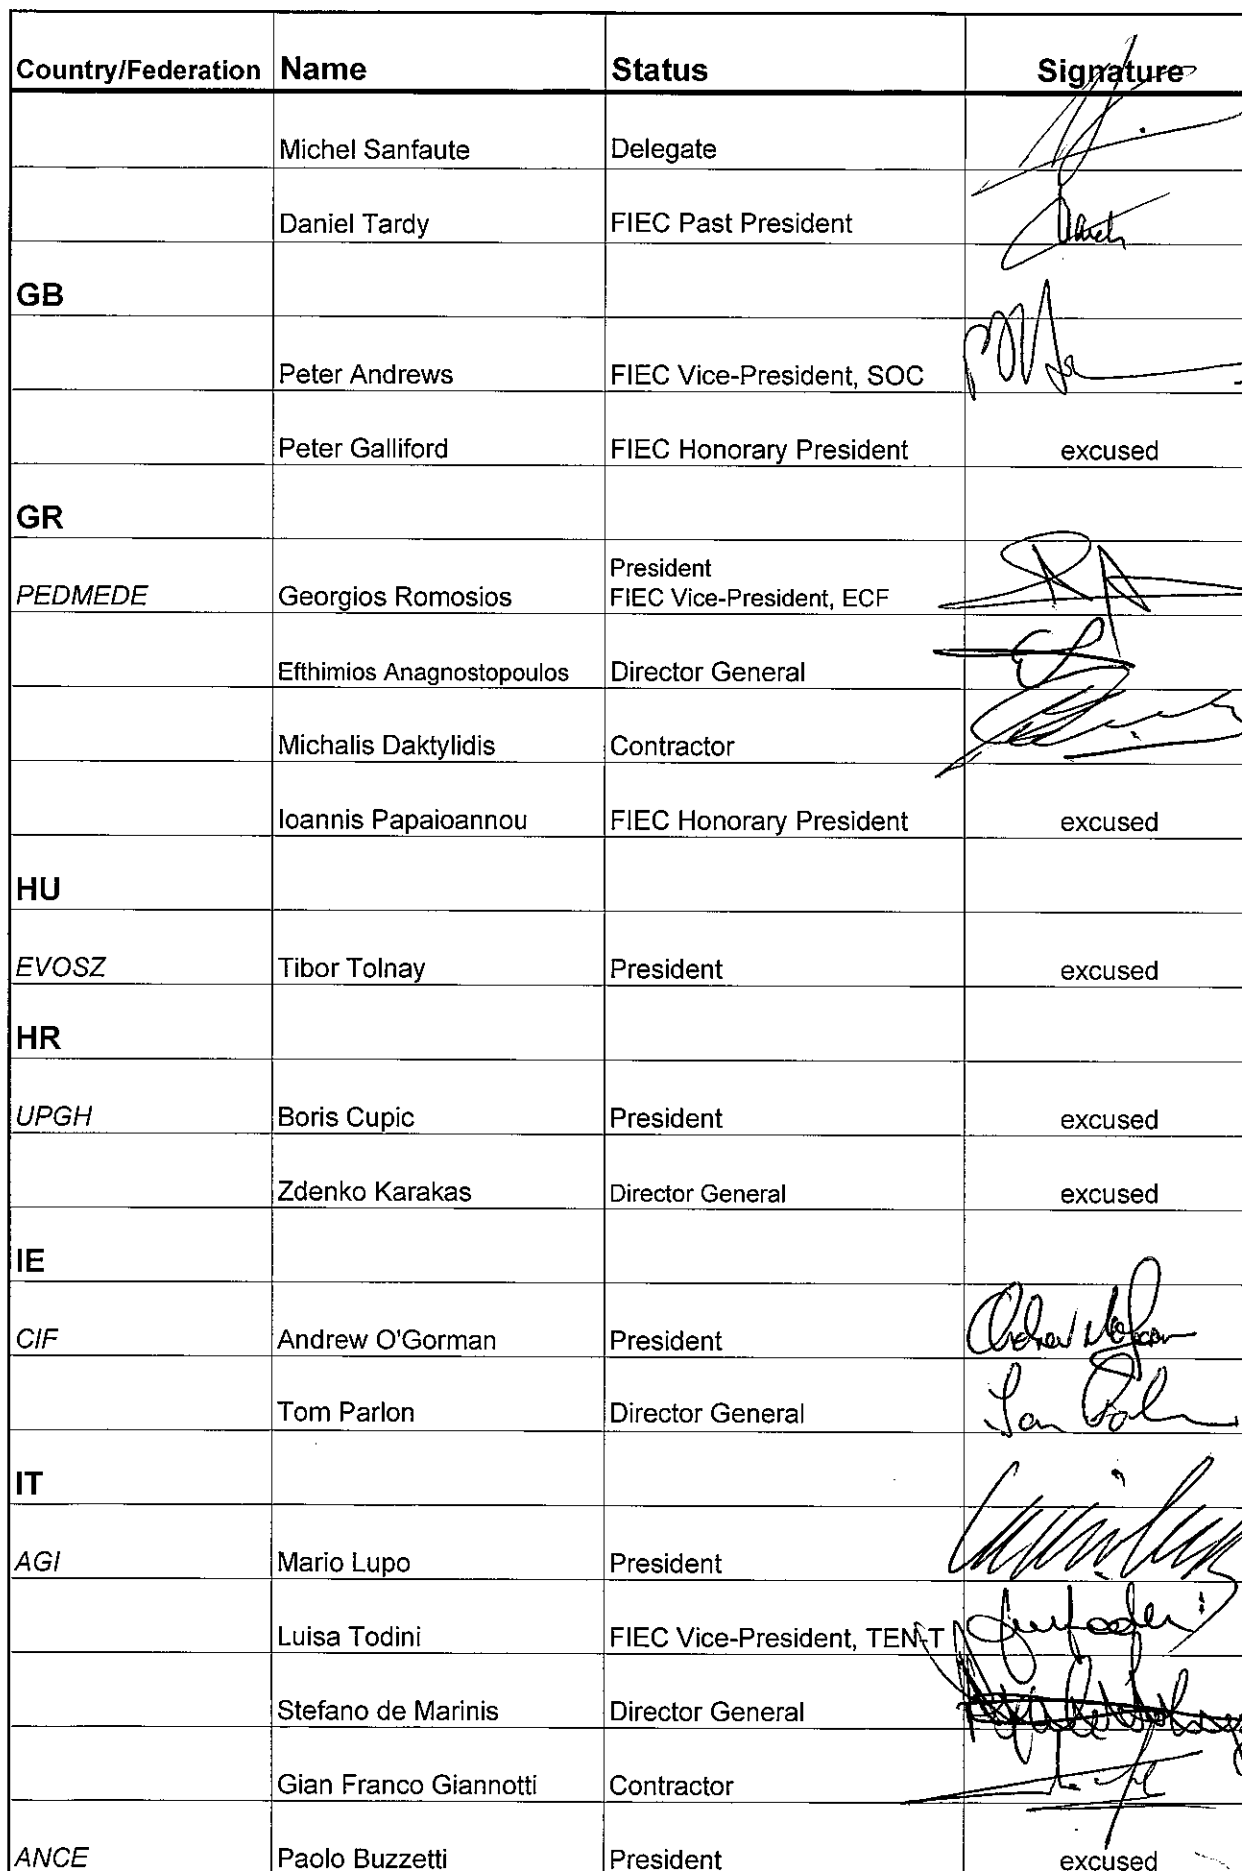 Country/Federation Name Status Signature
Michel Sanfaute Delegate
Daniel Tardy FIEC Past President
GB
Peter Andrews FIEC Vice-President, SOC
Peter Galliford FIEC Honorary President excused
GR
President
PEDMEDE Georgios Romosios FIEC Vice-President, ECF
Efthimios Anagnostopoulos Director General
Michalis Daktylidis Contractor
Ioannis Papaioannou FIEC Honorary President excused
HU
EVOSZ Tibor Tolnay President excused
HR
UPGH Boris Cupic President excused
Zdenko Karakas Director General excused
IE
CIF Andrew O'Gorman President
Tom Parlon Director General
IT
AGI Mario Lupo President
Luisa Todini FIEC Vice-President, TEN-T
Stefano de Marinis Director General
Gian Franco Giannotti Contractor
ANCE Paolo Buzzetti President excused